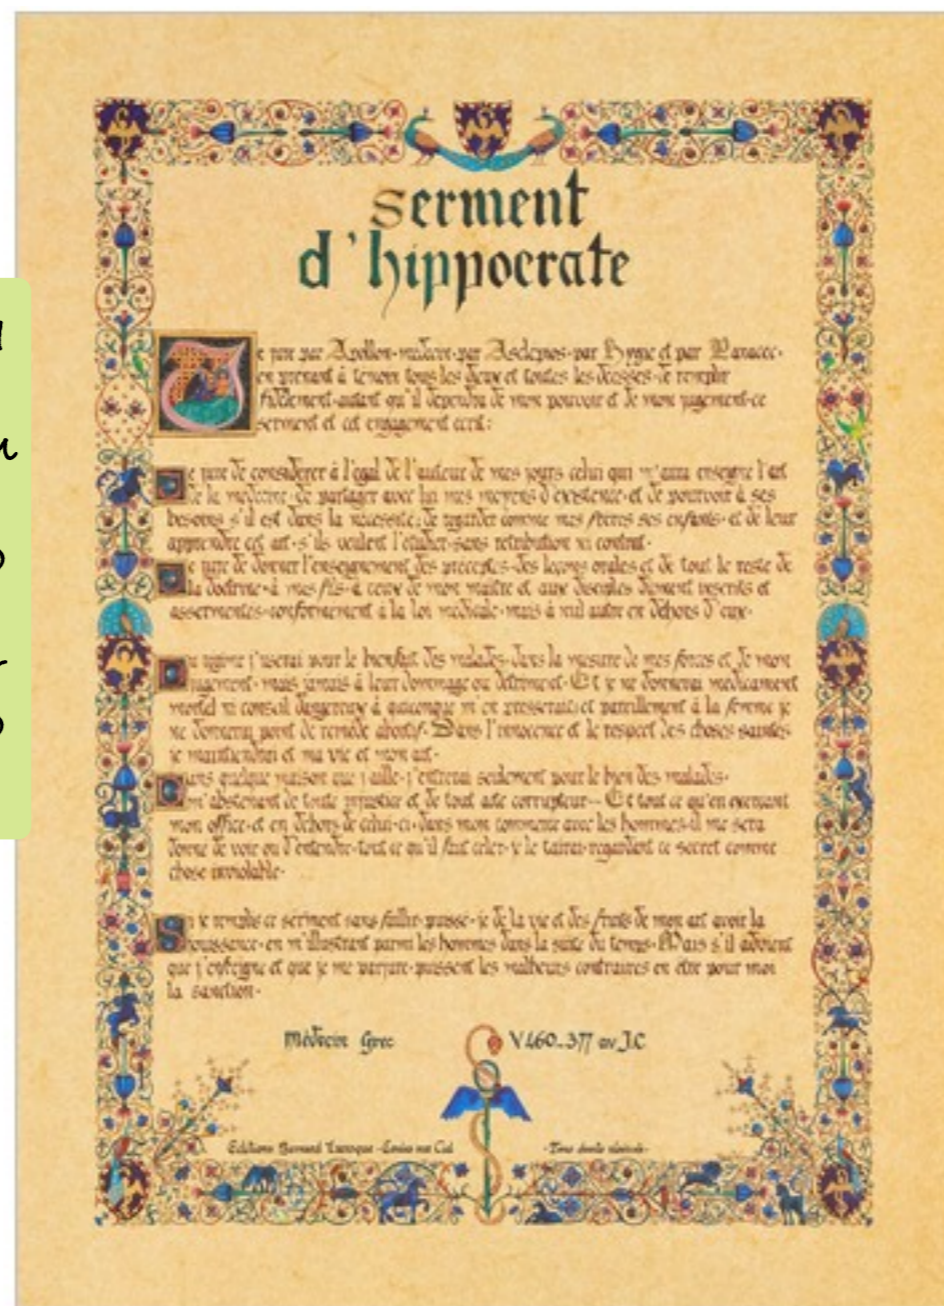 serment
d'hippocrate
Je jure par Apollon-médecin-par Asclepios-par Hygie et par Panacee-
en prenant à temoin tous les dieux et toutes les deesses-de remplir
fidelement-autant qu'il dependra de mon pouvoir et de mon jugement-ce
serment et cet engagement ecrit:
Je jure de considerer à l'egal de l'auteur de mes jours celui qui m'aura enseigne l'art
de la medecine-de partager avec lui mes moyens d'existence-et de pourvoir à ses
besoins s'il est dans la necessite; de regarder comme mes freres ses enfants-et de leur
apprendre cet art-s'ils veulent l'etudier-sans retribution ni contrat-
Je jure de donner l'enseignement des preceptes-des leçons orales et de tout le reste de
la doctrine-à mes fils-à ceux de mon maitre et aux disciples dûment inscrits et
assermentes-conformement à la loi medicale-mais à nul autre en dehors d'eux-
Le regime j'userai pour le bienfait des malades-dans la mesure de mes forces et de mon
jugement-mais jamais à leur dommage ou detriment-Et je ne donnerai medicament
mortel ni conseil dangereux à quiconque m'en presserait; et pareillement à la femme je
ne donnerai point de remede abortif-Dans l'innocence et le respect des choses saintes
je maintiendrai et ma vie et mon art-
Dans quelque maison que j'aille-j'entrerai seulement pour le bien des malades-
m'abstenant de toute injustice et de tout acte corrupteur-Et tout ce qu'en exerçant
mon office-et en dehors de celui-ci-dans mon commerce avec les hommes-il me sera
donne de voir ou d'entendre-tout ce qu'il faut celer-je le tairai-regardant ce secret comme
chose inviolable-
Si je remplis ce serment sans faillir-puisse-je de la vie et des fruits de mon art avoir la
jouissance-en m'illustrant parmi les hommes dans la suite du temps-Mais s'il advient
que j'enfreigne et que je me parjure-puissent les malheurs contraires en etre pour moi
la sanction-
Médecin Grec V460_377 av J.C
Editions Bernard